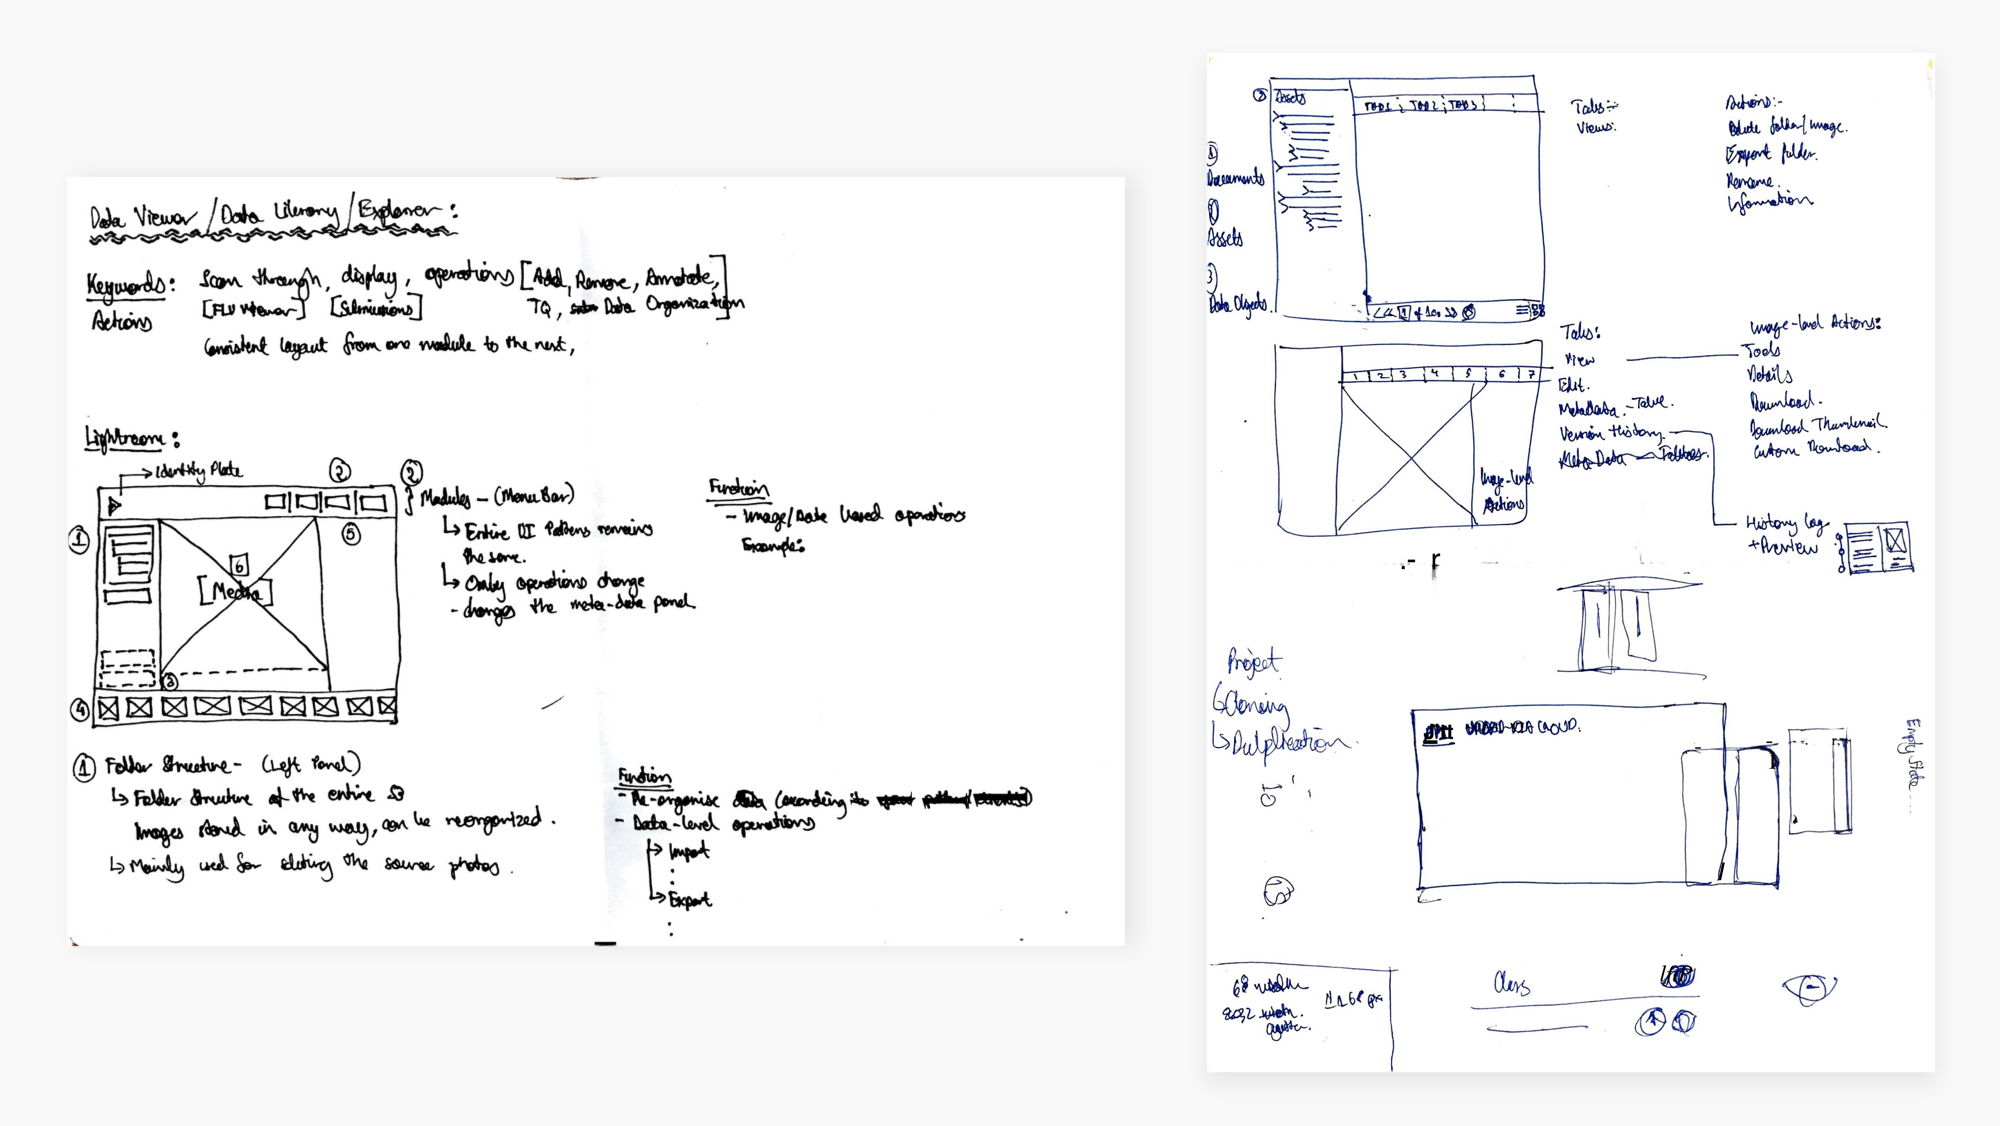 Data Viewer / Data Library / Explorer :
Keywords : Scan through, display, operations [Add, Remove, Annotate,
Actions [FLU Viewer] [Submissions] TQ, Data Organization]
Consistent layout from one module to the next,
Lightroom :
Identity Plate
2
1
5
6
[Media]
3
4
2 } Modules - (Menu Bar)
↳ Entire UI Patterns remains
the same.
↳ Only operations change
- changes the meta-data panel
Function
- Image/Data based operations
Example:
1 Folder Structure - (Left Panel)
↳ Folder Structure of the entire S3
Images stored in any way, can be reorganized.
↳ Mainly used for editing the source photos.
Function
- Re-organise data (according to
- Data-level operations
→ Import
:
→ Export
:
2 Assets
TAB 1 TAB 2 TAB 3
1
Documents
2
Assets
3
Data Objects
Tabs:-
Views:
Actions:-
Delete folder/Image.
Export folder.
Rename.
Information
1 2 3 4 5 6 7
Image-level
Actions
Tabs:
View
Edit.
Metadata. - Table.
Version History
Meta Data - Folders.
Image-level Actions:
Tools
Details
Download.
Download Thumbnail.
Custom Download.
History Log
+ Preview
Project
↳ Cloning
↳ Duplication
UPLOAD VIA CLOUD.
Empty State
10
Class